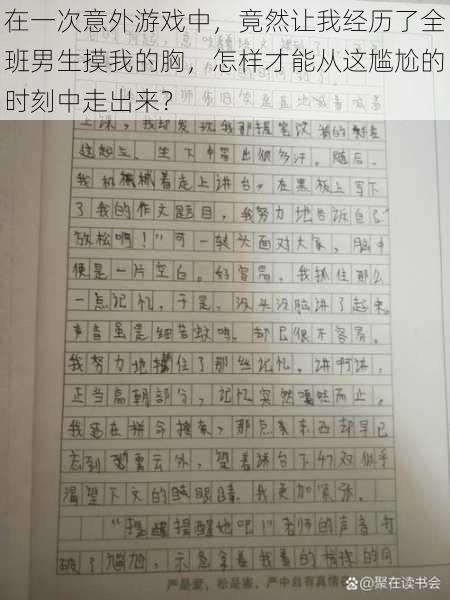 在一次意外游戏中，竟然让我经历了全
班男生摸我的胸，怎样才能从这尴尬的
时刻中走出来？
上课，我却发现我那握笔沉
这起点，坐下中冒出很多汗。随后，
我机械械着走上讲台，在黑板上写下
了我的作文题目，我努力地告诉自己：
放松啊！”可一转头面对大家，脑中
便是一片空白。好容易，我抓住那么
一点记忆，于是，没头没脑讲了起来。
声音虽是细若蚊鸣，却已很不容易。
我努力地揪住了那丝记忆。讲啊讲，
正当高潮部分，记忆突然嘎然而止，
我还在拼命搜索，那点东西却早已
忘到云外，望着讲台下47双似乎
渴望下文的眼睛，我更加紧张。
“提醒提醒她吧！”老师的声音打
破了尴尬，示意拿着我着的同
严是爱，松是害，严中自有真情
@聚在读书会